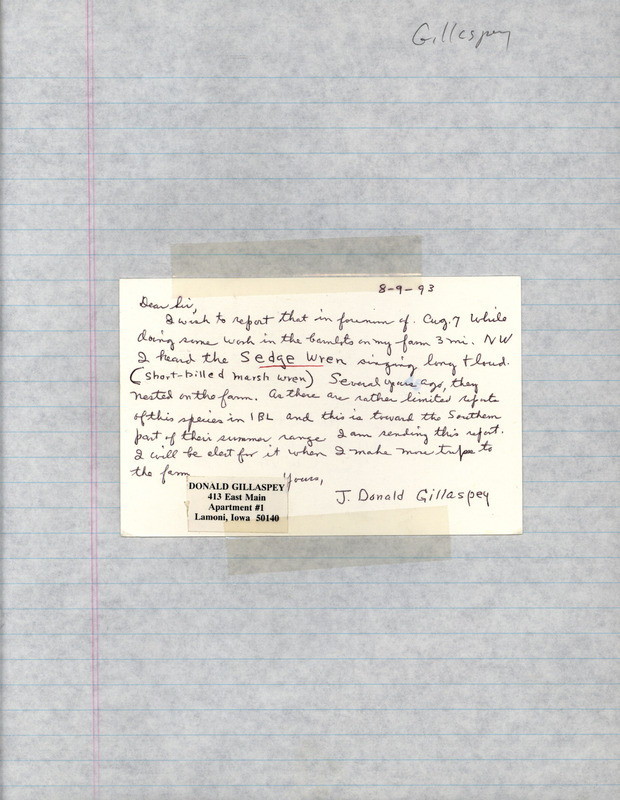 Gillespey
8-9-93
Dear Sir,
I wish to report that in forenoon of Aug. 7 while
doing some work in the on my farm 3 mi. NW
I heard the Sedge Wren singing long & loud.
(short-billed marsh wren) Several years ago, they
nested on the farm. As there are rather limited reports
of this species in IBL and this is toward the Southern
part of their summer range I am sending this report.
I will be alert for it when I make more trips to
the farm
Yours,
J. Donald Gillaspey
DONALD GILLASPEY
413 East Main
Apartment #1
Lamoni, Iowa 50140